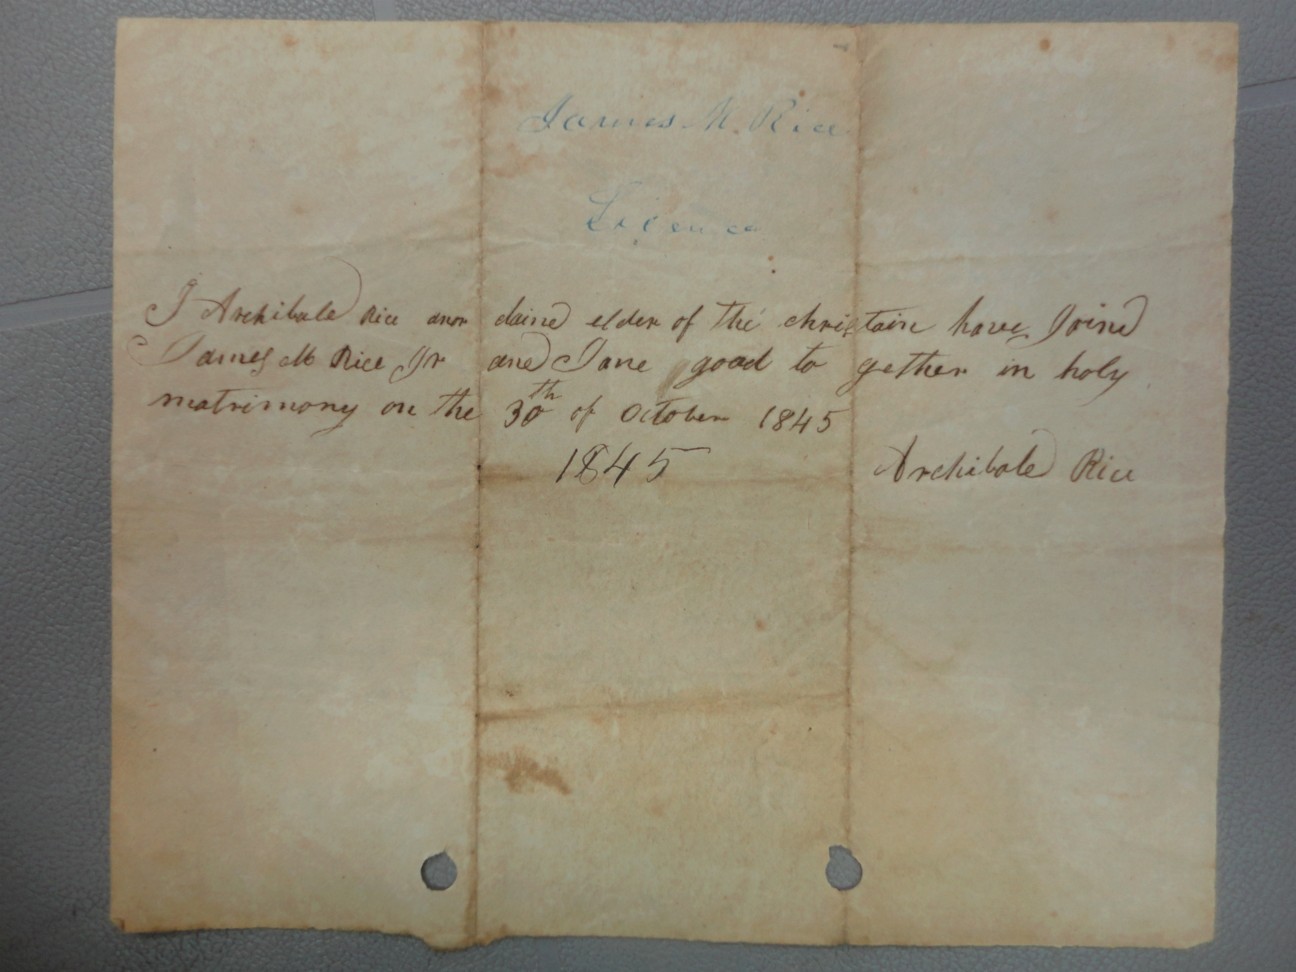 James M Rice
Licence
I Archibald Rice anor dained elder of the christain have Joind
James M Rice Jr and Jane good to gether in holy
matrimony on the 30th of October 1845
1845 Archibald Rice